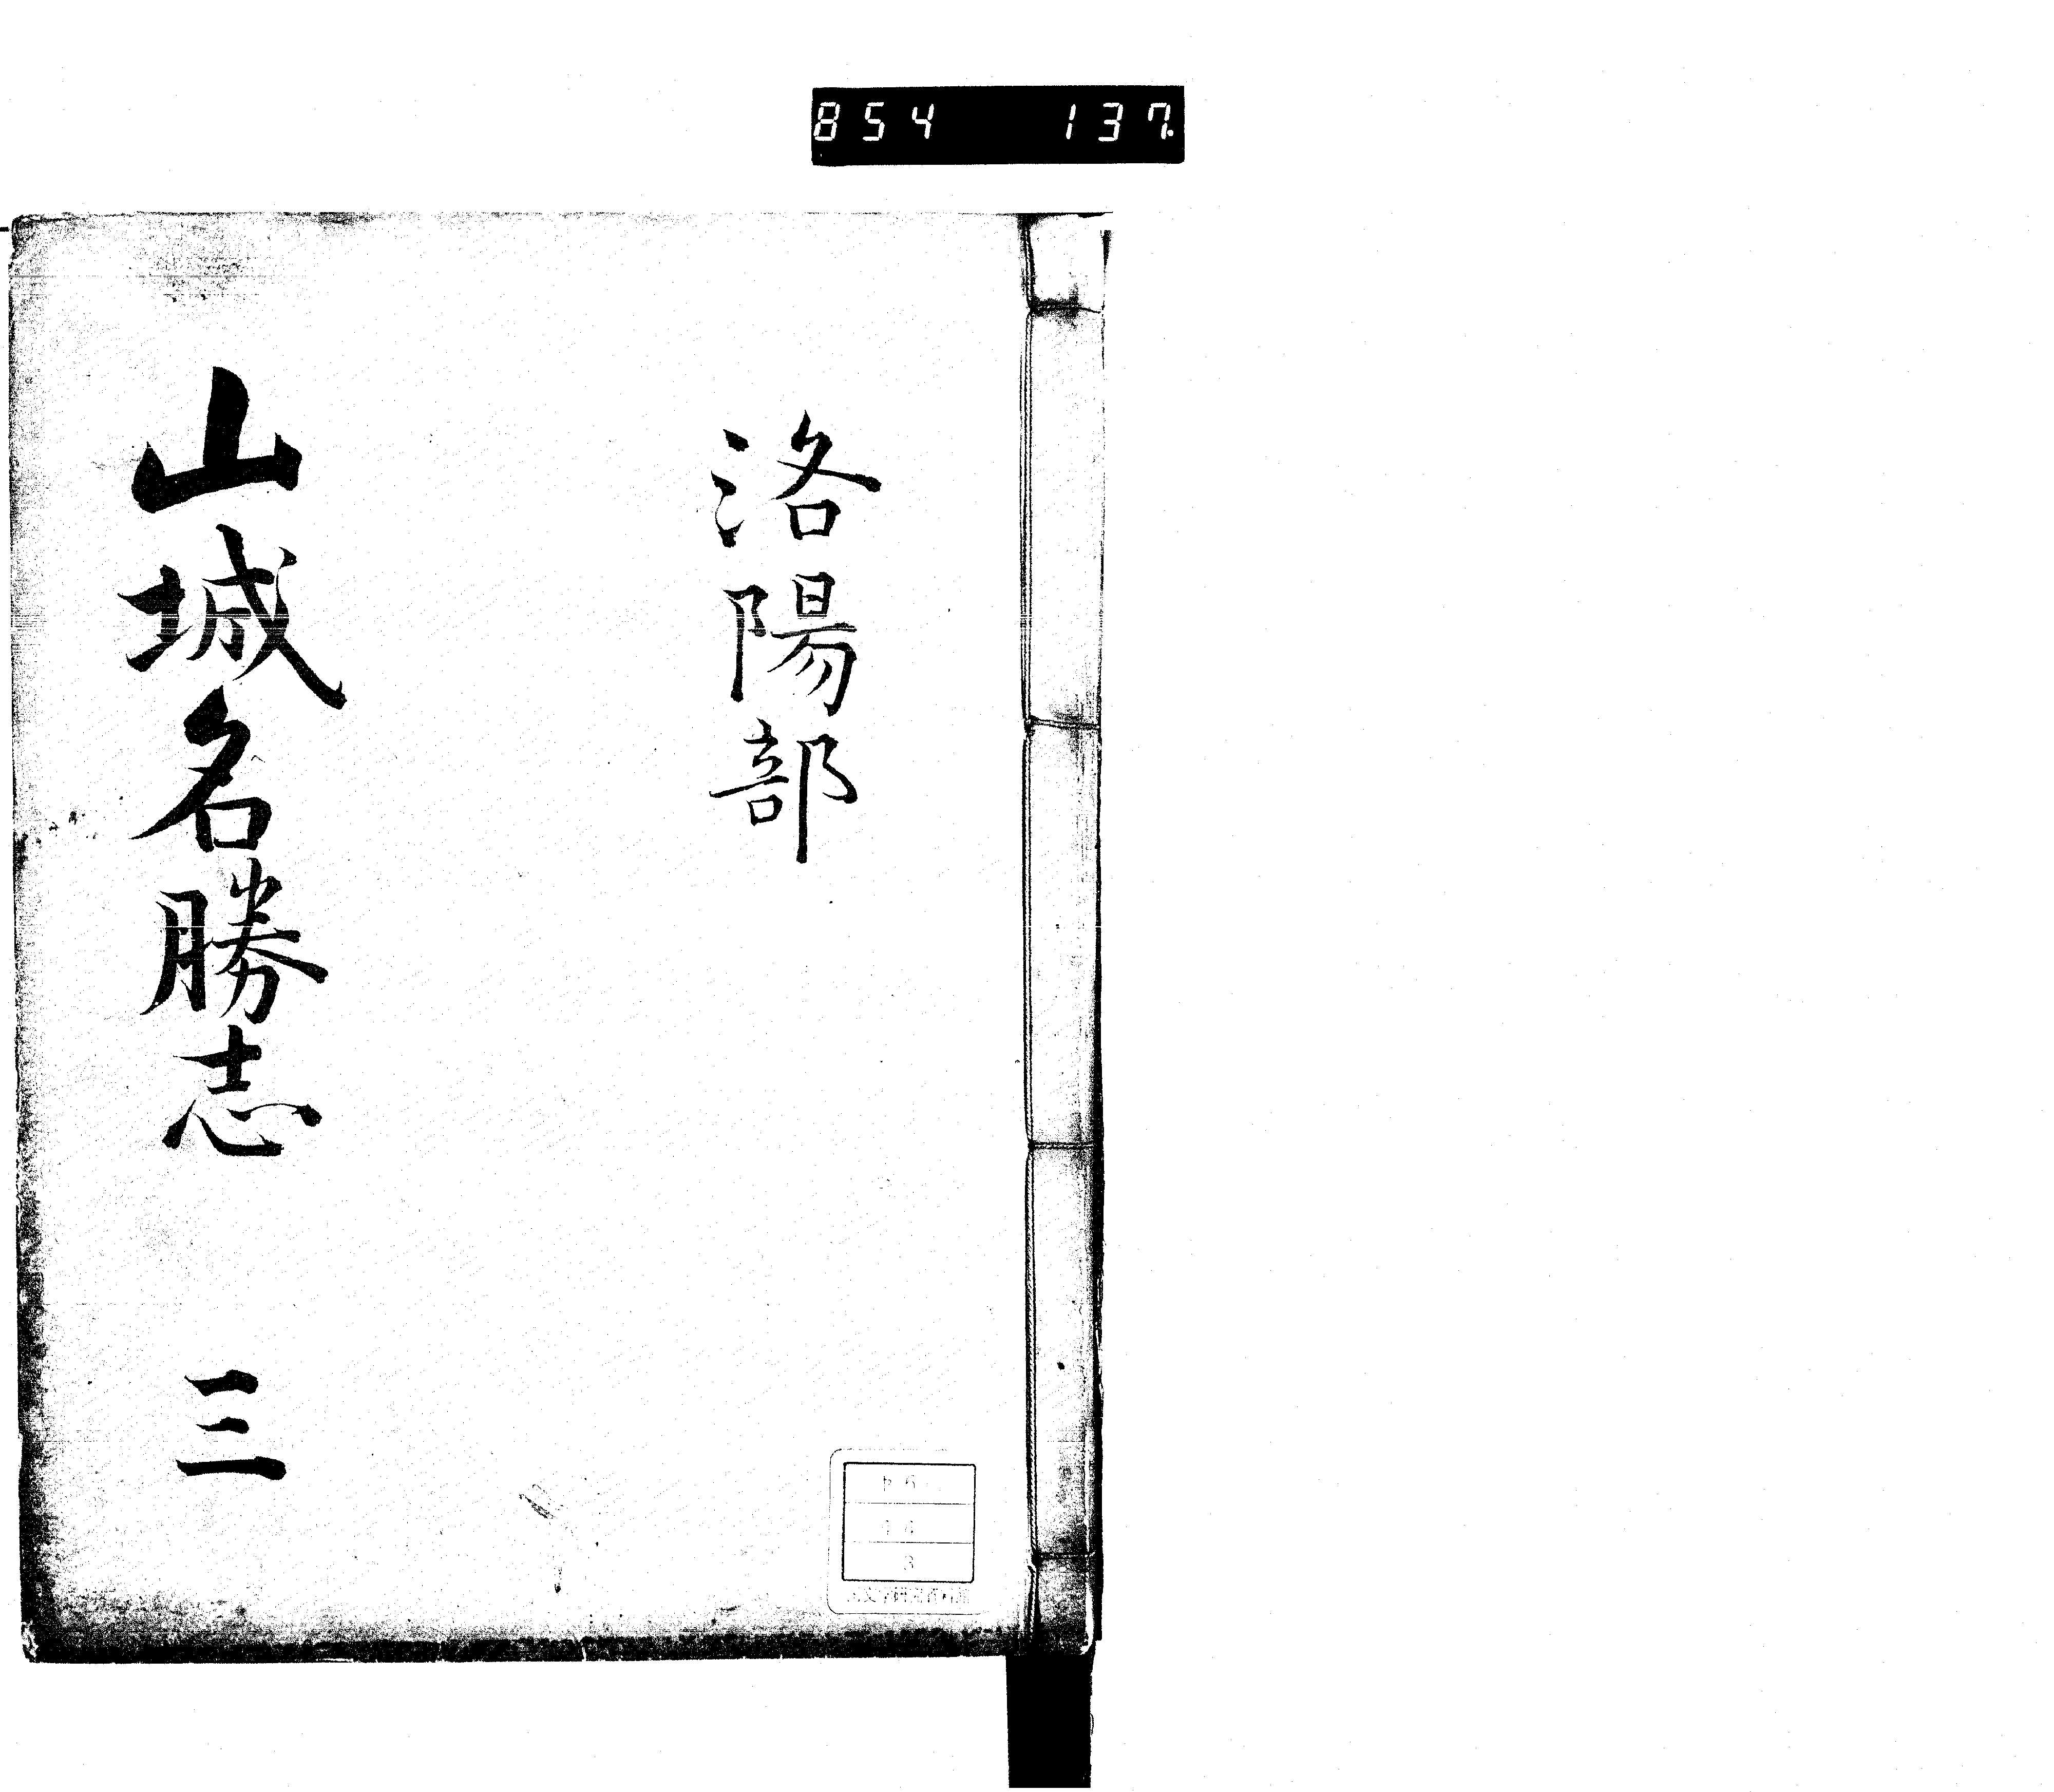 854 137
洛陽部
山城名勝志 三